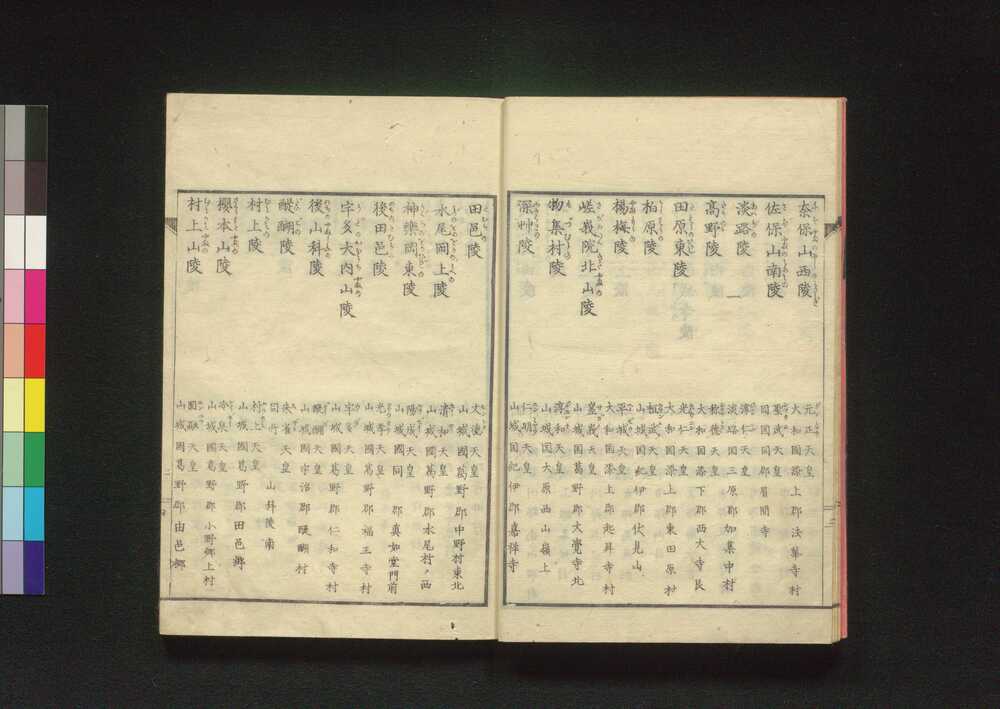 奈保山西陵
元正天皇
大和国添上郡法華寺村
佐保山南陵
聖武天皇
同国同郡眉間寺
淡路陵
淳仁天皇
淡路国三原郡加集中村
高野陵
称徳天皇
大和国添下郡西大寺艮
田原東陵
光仁天皇
大和国添上郡東田原村
柏原陵
桓武天皇
山城国紀伊郡伏見山
楊梅陵
平城天皇
大和国添上郡超昇寺村
嵯峨院北山陵
嵯峨天皇
山城国葛野郡大覚寺北
物集村陵
淳和天皇
山城国大原西山嶺上
深艸陵
仁明天皇
山城国紀伊郡嘉禅寺
田邑陵
文徳天皇
山城國葛野郡中野村東北
水尾岡上陵
清和天皇
山城國葛野郡水尾村ノ西
神樂岡東陵
陽成天皇
山城國同郡真如堂門前
後田邑陵
光孝天皇
山城國葛野郡福王寺村
宇多大内山陵
宇多天皇
山城國葛野郡仁和寺村
後山科陵
醍醐天皇
山城國宇治郡醍醐村
醍醐陵
朱雀天皇
同所山科陵南
村上陵
村上天皇
山城國葛野郡田邑郷
櫻本山陵
冷泉天皇
山城國葛野郡小野郷上村
村上山陵
圓融天皇
山城國葛野郡田邑郷